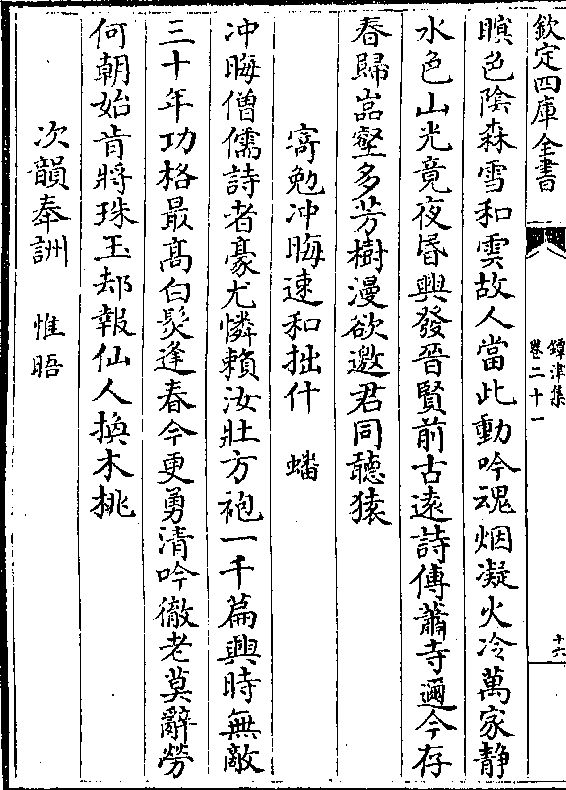 欽定四庫全書
鐔津集
卷二十一
十六
瞑色陰森雪和雲故人當此動吟魂烟凝火冷萬家静
水色山光竟夜昏興發晉賢前古遠詩傳蕭寺邇今存
春歸嵓壑多芳樹漫欲邀君同聽猿
寄勉冲晦速和拙什　蟠
冲晦僧儒詩者豪尤憐賴汝壯方袍一千篇興時無敵
三十年功格最髙白髮逢春今更勇清吟徹老莫辭勞
何朝始肯將珠玉却報仙人換木桃
次韻奉詶　惟晤